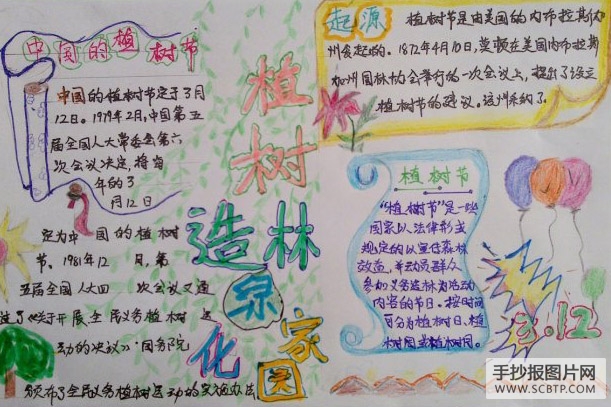 中国的植树节
中国的植树节定于3月
12日。1979年2月,中国第五
届全国人大常委会第六
次会议决定,将每
年的3
月12日
定为中国的植树
节。1981年12月,第
五届全国人大四次会议又通
过了《关于开展全民义务植树运
动的决议》。国务院
颁布了全民义务植树运动的实施办法。
植树
造林
绿
化
家
园
起源
植树节是由美国的内布拉斯加
州发起的。1872年4月10日,莫顿在美国内布拉斯
加州园林协会举行的一次会议上,提出了设立
植树节的建议。这州采纳了。
植树节
"植树节"是一些
国家以法律形式
规定的以宣传森林
效益,并动员群众
参加义务造林为活动
内容的节日。按时间
可分为植树日、植
树周或植树月。
3.12
手抄报图片网
www.SCBTP.COM